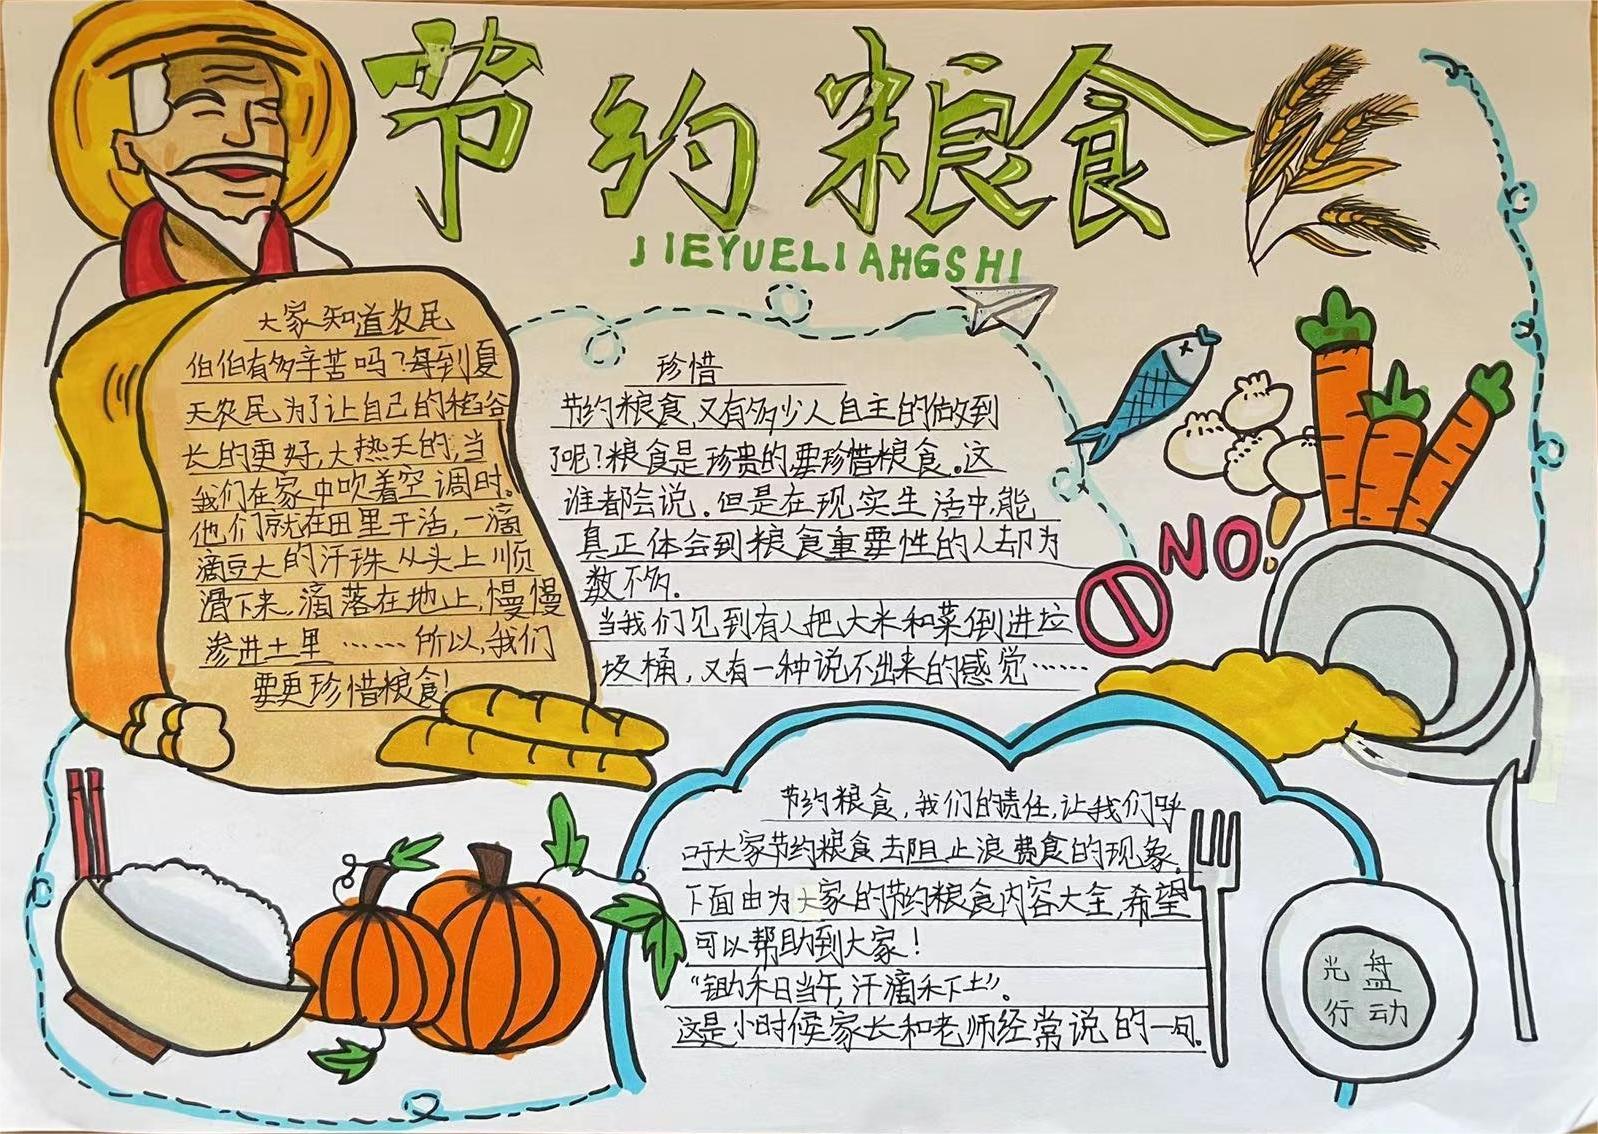 节约粮食
JIEYUELIANGSHI
大家知道农民
伯伯有多辛苦吗?每到夏
天农民为了让自己的稻谷
长的更好,大热天的,当
我们在家中吹着空调时。
他们就在田里干活,一滴
滴豆大的汗珠从头上顺
滑下来,滴落在地上,慢慢
渗进土里……所以,我们
要更珍惜粮食!
珍惜
节约粮食,又有多少人自主的做到
了呢?粮食是珍贵的要珍惜粮食。这
谁都会说。但是在现实生活中,能
真正体会到粮食重要性的人却为
数不多。
当我们见到有人把大米和菜倒进垃
圾桶,又有一种说不出来的感觉……
NO!
节约粮食,我们的责任,让我们呼
吁大家节约粮食去阻止浪费食的现象。
下面由为大家的节约粮食内容大全,希望
可以帮助到大家!
“锄禾日当午,汗滴禾下土”。
这是小时候家长和老师经常说的一句。
光盘
行动